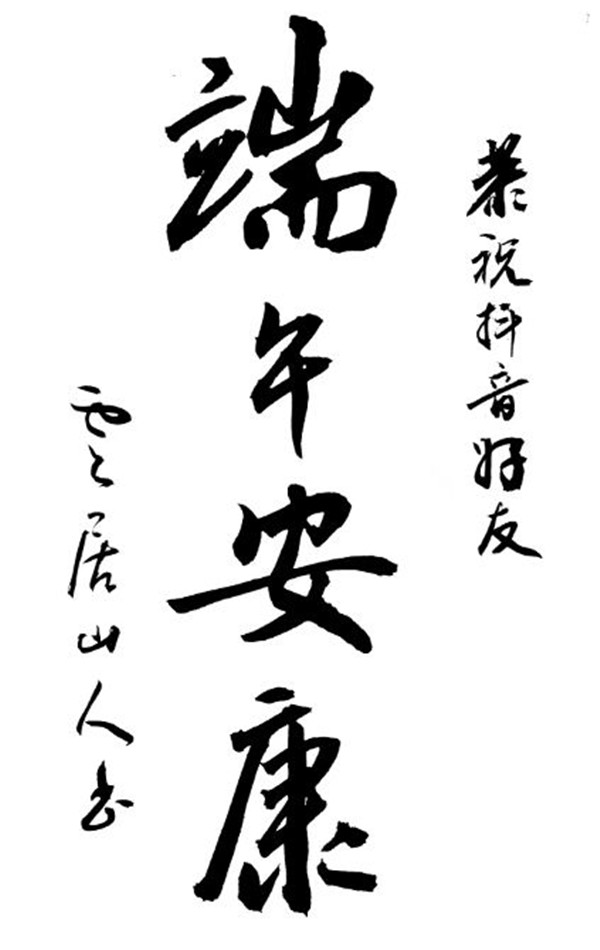 恭祝抖音好友
端午安康
雲居山人书